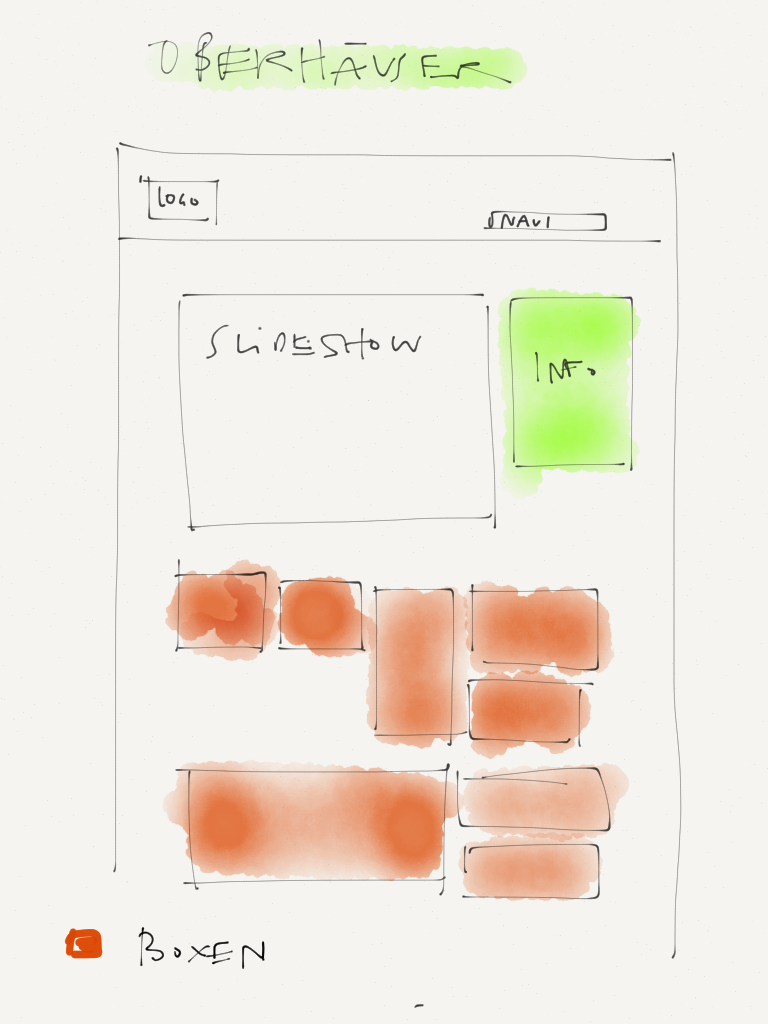 OBERHÄUSER
LOGO
NAVI
SLIDESHOW
INFO
BOXEN